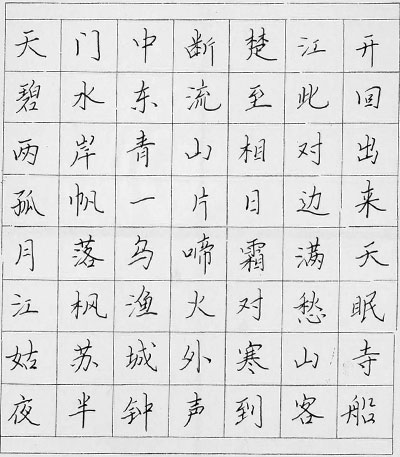 天门中断楚江开
碧水东流至此回
两岸青山相对出
孤帆一片日边来
月落乌啼霜满天
江枫渔火对愁眠
姑苏城外寒山寺
夜半钟声到客船